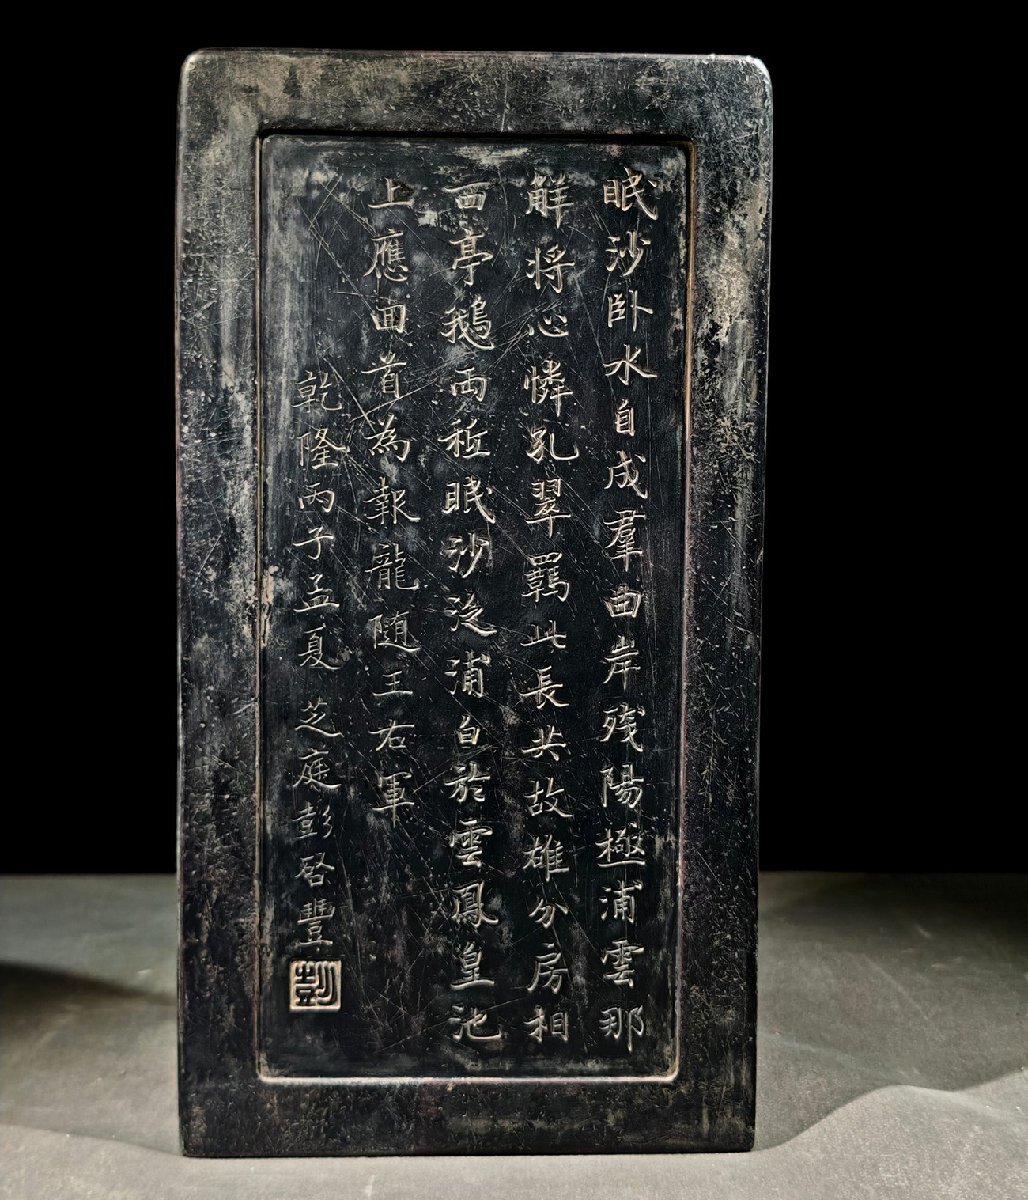 眠沙卧水自成羣曲岸残陽極浦雲那
解将心憐孔翠羈此長共故雄分房相
西亭鵝兩𥝠眠沙泛浦白於雲鳳皇池
上應回首為報龍随王右軍
乾隆丙子孟夏芝庭彭啓豐
彭